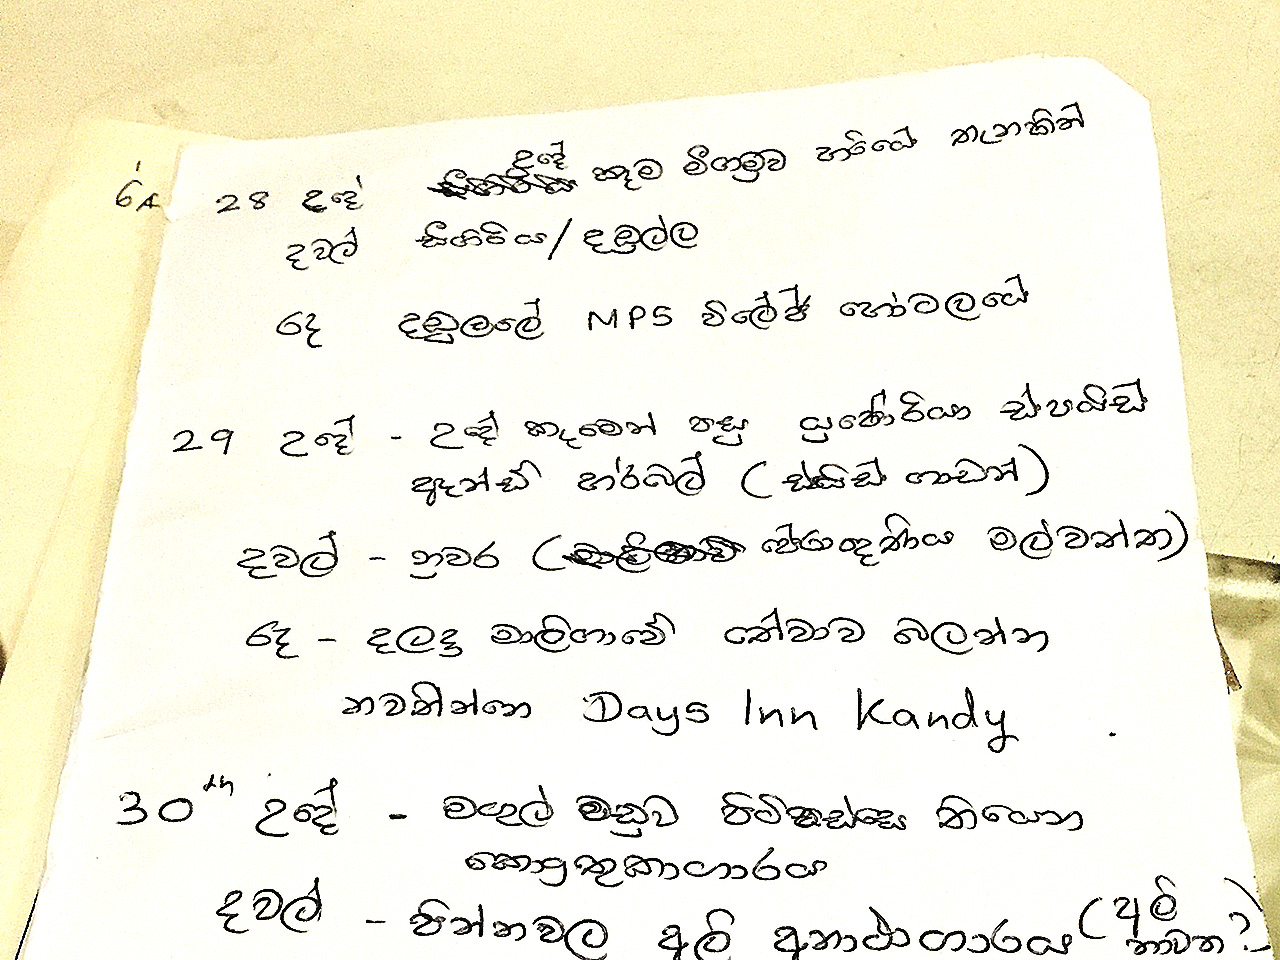 28 උදේ උදේ කෑම මීගමුව හරියේ තැනකින්
දවල් සීගිරිය/දඹුල්ල
රෑ දඹුලලේ MPS විලේජ් හෝටලයේ
29 උදේ - උදේ කෑමෙන් පසු යුපෝරියා ස්පයිස්
ඇන්ඩ් හර්බල් (ස්පයිස් ගාඩන්)
දවල් - නුවර (පේරාදෙණිය මල්වත්ත)
රෑ - දලදා මාලිගාවේ තේවාව බලන්න
නවතින්නෙ Days Inn Kandy
30th උදේ - මගුල් මඩුව පිටිපස්සෙ තියෙන
කෞතුකාගාරය
දවල් - පින්නවල අලි අනාථාගාරය (අලි
නාවන?)